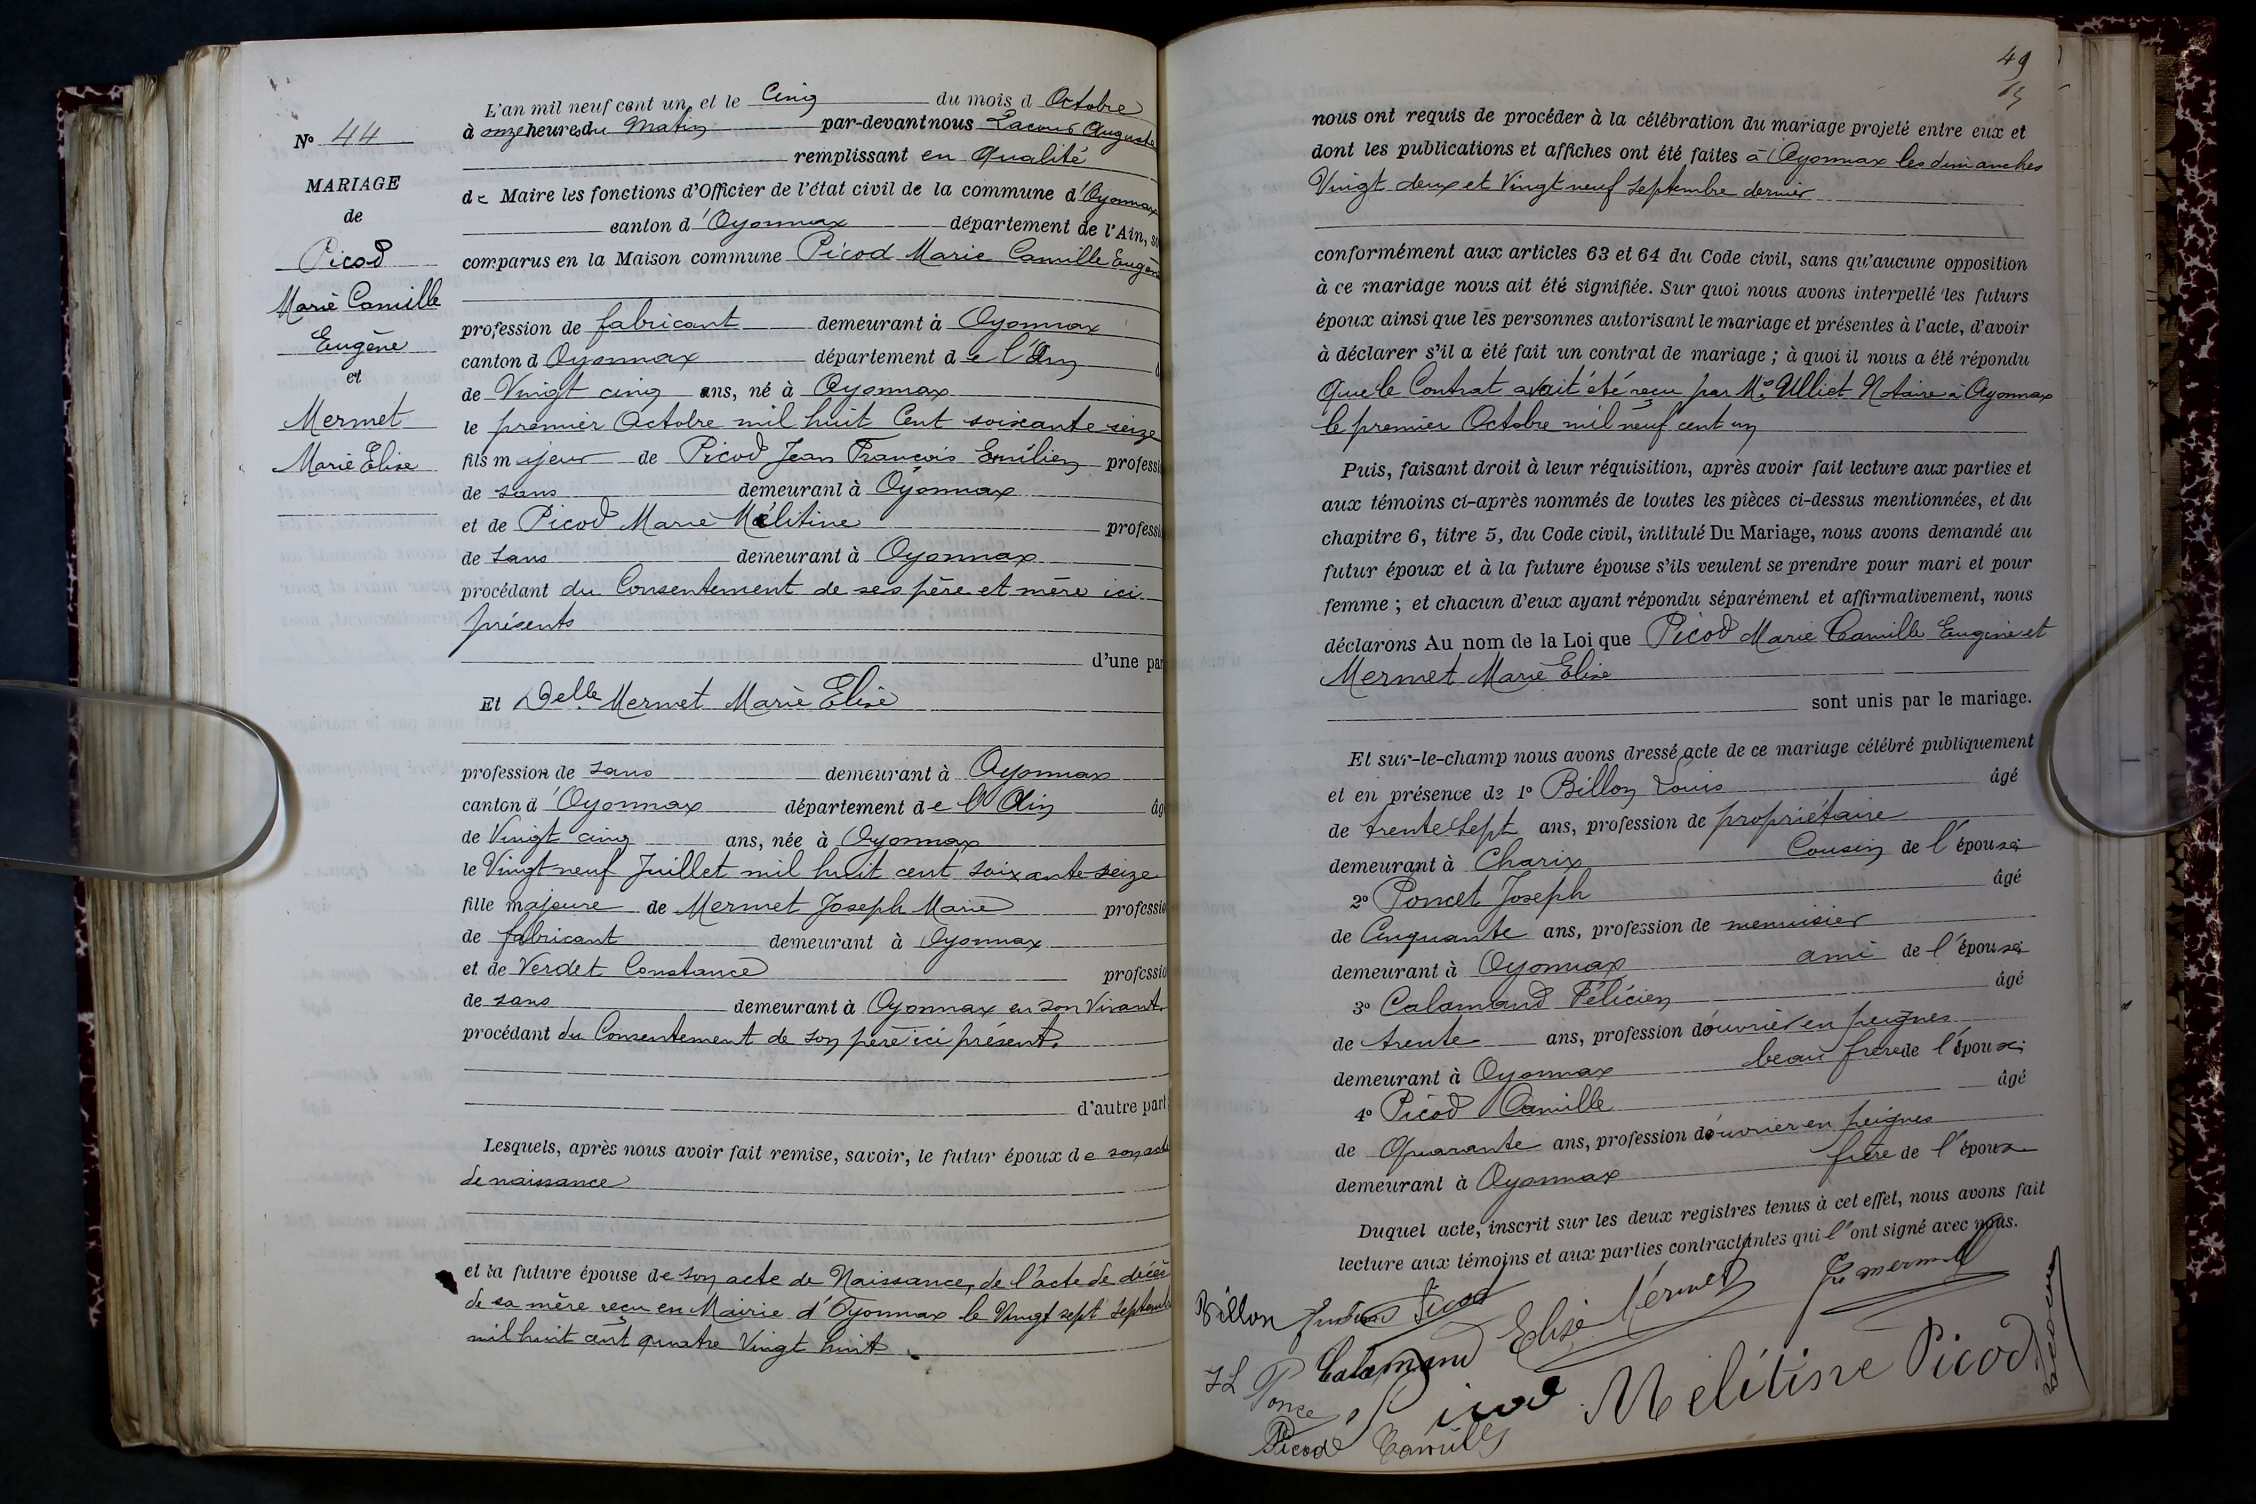 N° 44
MARIAGE
de
Picod
Marie Camille
Eugène
et
Mermet
Marie Elise
L'an mil neuf cent un et le Cinq du mois d Octobre
à onze heures du Matin par-devant nous Lacour Auguste
remplissant en qualité
de Maire les fonctions d'Officier de l'état civil de la commune d'Oyonnax
canton d'Oyonnax département de l'Ain, so
comparus en la Maison commune Picod Marie Camille Eugène
profession de fabricant demeurant à Oyonnax
canton d Oyonnax département de l'Ain
de Vingt cinq ans, né à Oyonnax
le premier Octobre mil huit Cent soixante-seize
fils majeur de Picod Jean François Emilien professi
de sans demeurant à Oyonnax
et de Picod Marie Mélitine professi
de sans demeurant à Oyonnax
procédant du Consentement de ses père et mère ici
présents
d'une par
Et Delle Mermet Marie Elise
profession de sans demeurant à Oyonnax
canton d'Oyonnax département de l'Ain âg
de Vingt cinq ans, née à Oyonnax
le Vingt neuf Juillet mil huit cent soixante-seize
fille majeure de Mermet Joseph Marie professio
de fabricant demeurant à Oyonnax
et de Verdet Constance professio
de sans demeurant à Oyonnax en son vivant
procédant du Consentement de son père ici présent.
d'autre part
Lesquels, après nous avoir fait remise, savoir, le futur époux de son acte
de naissance
et la future épouse de son acte de Naissance, de l'acte de décès
de sa mère reçu en Mairie d'Oyonnax le Vingt sept septemb
mil huit cent quatre Vingt huit.
49
nous ont requis de procéder à la célébration du mariage projeté entre eux et
dont les publications et affiches ont été faites à Oyonnax les dimanches
Vingt deux et Vingt neuf septembre dernier
conformément aux articles 63 et 64 du Code civil, sans qu'aucune opposition
à ce mariage nous ait été signifiée. Sur quoi nous avons interpellé les futurs
époux ainsi que les personnes autorisant le mariage et présentes à l'acte, d'avoir
à déclarer s'il a été fait un contrat de mariage ; à quoi il nous a été répondu
Que le Contrat avait été reçu par Me Ulliet Notaire à Oyonnax
le premier Octobre mil neuf cent un
Puis, faisant droit à leur réquisition, après avoir fait lecture aux parties et
aux témoins ci-après nommés de toutes les pièces ci-dessus mentionnées, et du
chapitre 6, titre 5, du Code civil, intitulé Du Mariage, nous avons demandé au
futur époux et à la future épouse s'ils veulent se prendre pour mari et pour
femme ; et chacun d'eux ayant répondu séparément et affirmativement, nous
déclarons Au nom de la Loi que Picod Marie Camille Eugène et
Mermet Marie Elise
sont unis par le mariage.
Et sur-le-champ nous avons dressé acte de ce mariage célébré publiquement
et en présence de 1° Billon Louis âgé
de trente sept ans, profession de propriétaire
demeurant à Charix Cousin de l'épouse
2° Poncet Joseph âgé
de Cinquante ans, profession de menuisier
demeurant à Oyonnax ami de l'épouse
3° Calamand Félicien âgé
de trente ans, profession d'ouvrier en peignes
demeurant à Oyonnax beau frère de l'époux
4° Picod Camille âgé
de Quarante ans, profession d'ouvrier en peignes
demeurant à Oyonnax frère de l'époux
Duquel acte, inscrit sur les deux registres tenus à cet effet, nous avons fait
lecture aux témoins et aux parties contractantes qui l'ont signé avec nous.
Billon Picod Elise Mermet Mermet
Calamand
Ponce Picod Melitine Picod Lacour
Picod Camille